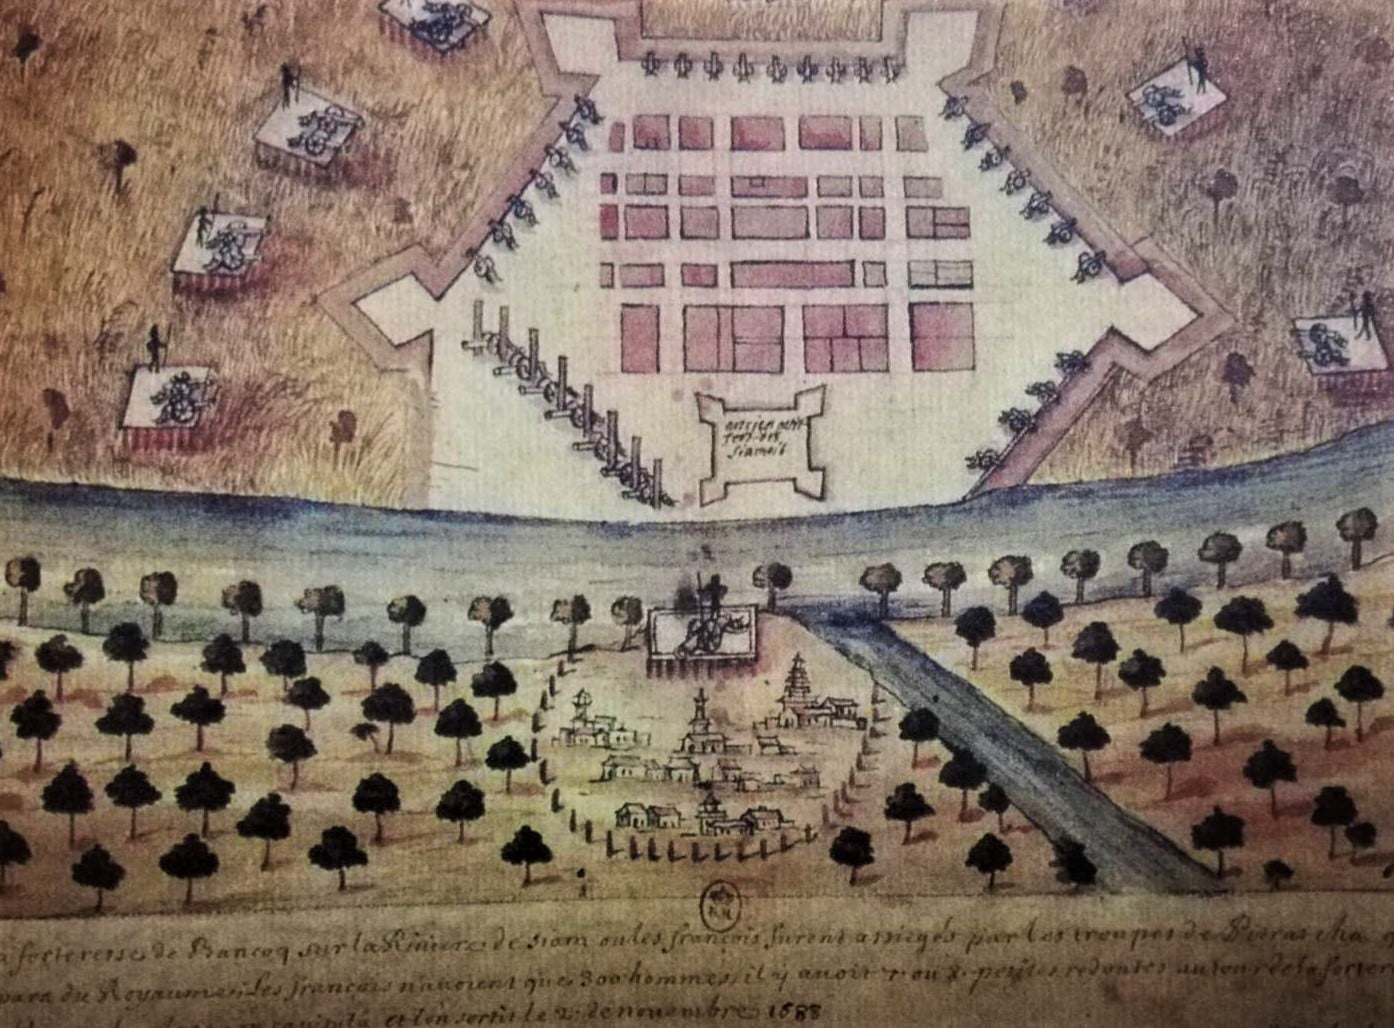 ancien petit
fort des
siamois
forteresse de Bancoq sur la Riviere de siam ou les françois furent assiegés par les troupes de Pitrascha
du Royaume. les françois n'avoient que 300 hommes, il y avoit 7 ou 8 petites redoutes autour de la forter
capitula et l'on sortit le 2 de novembre 1688